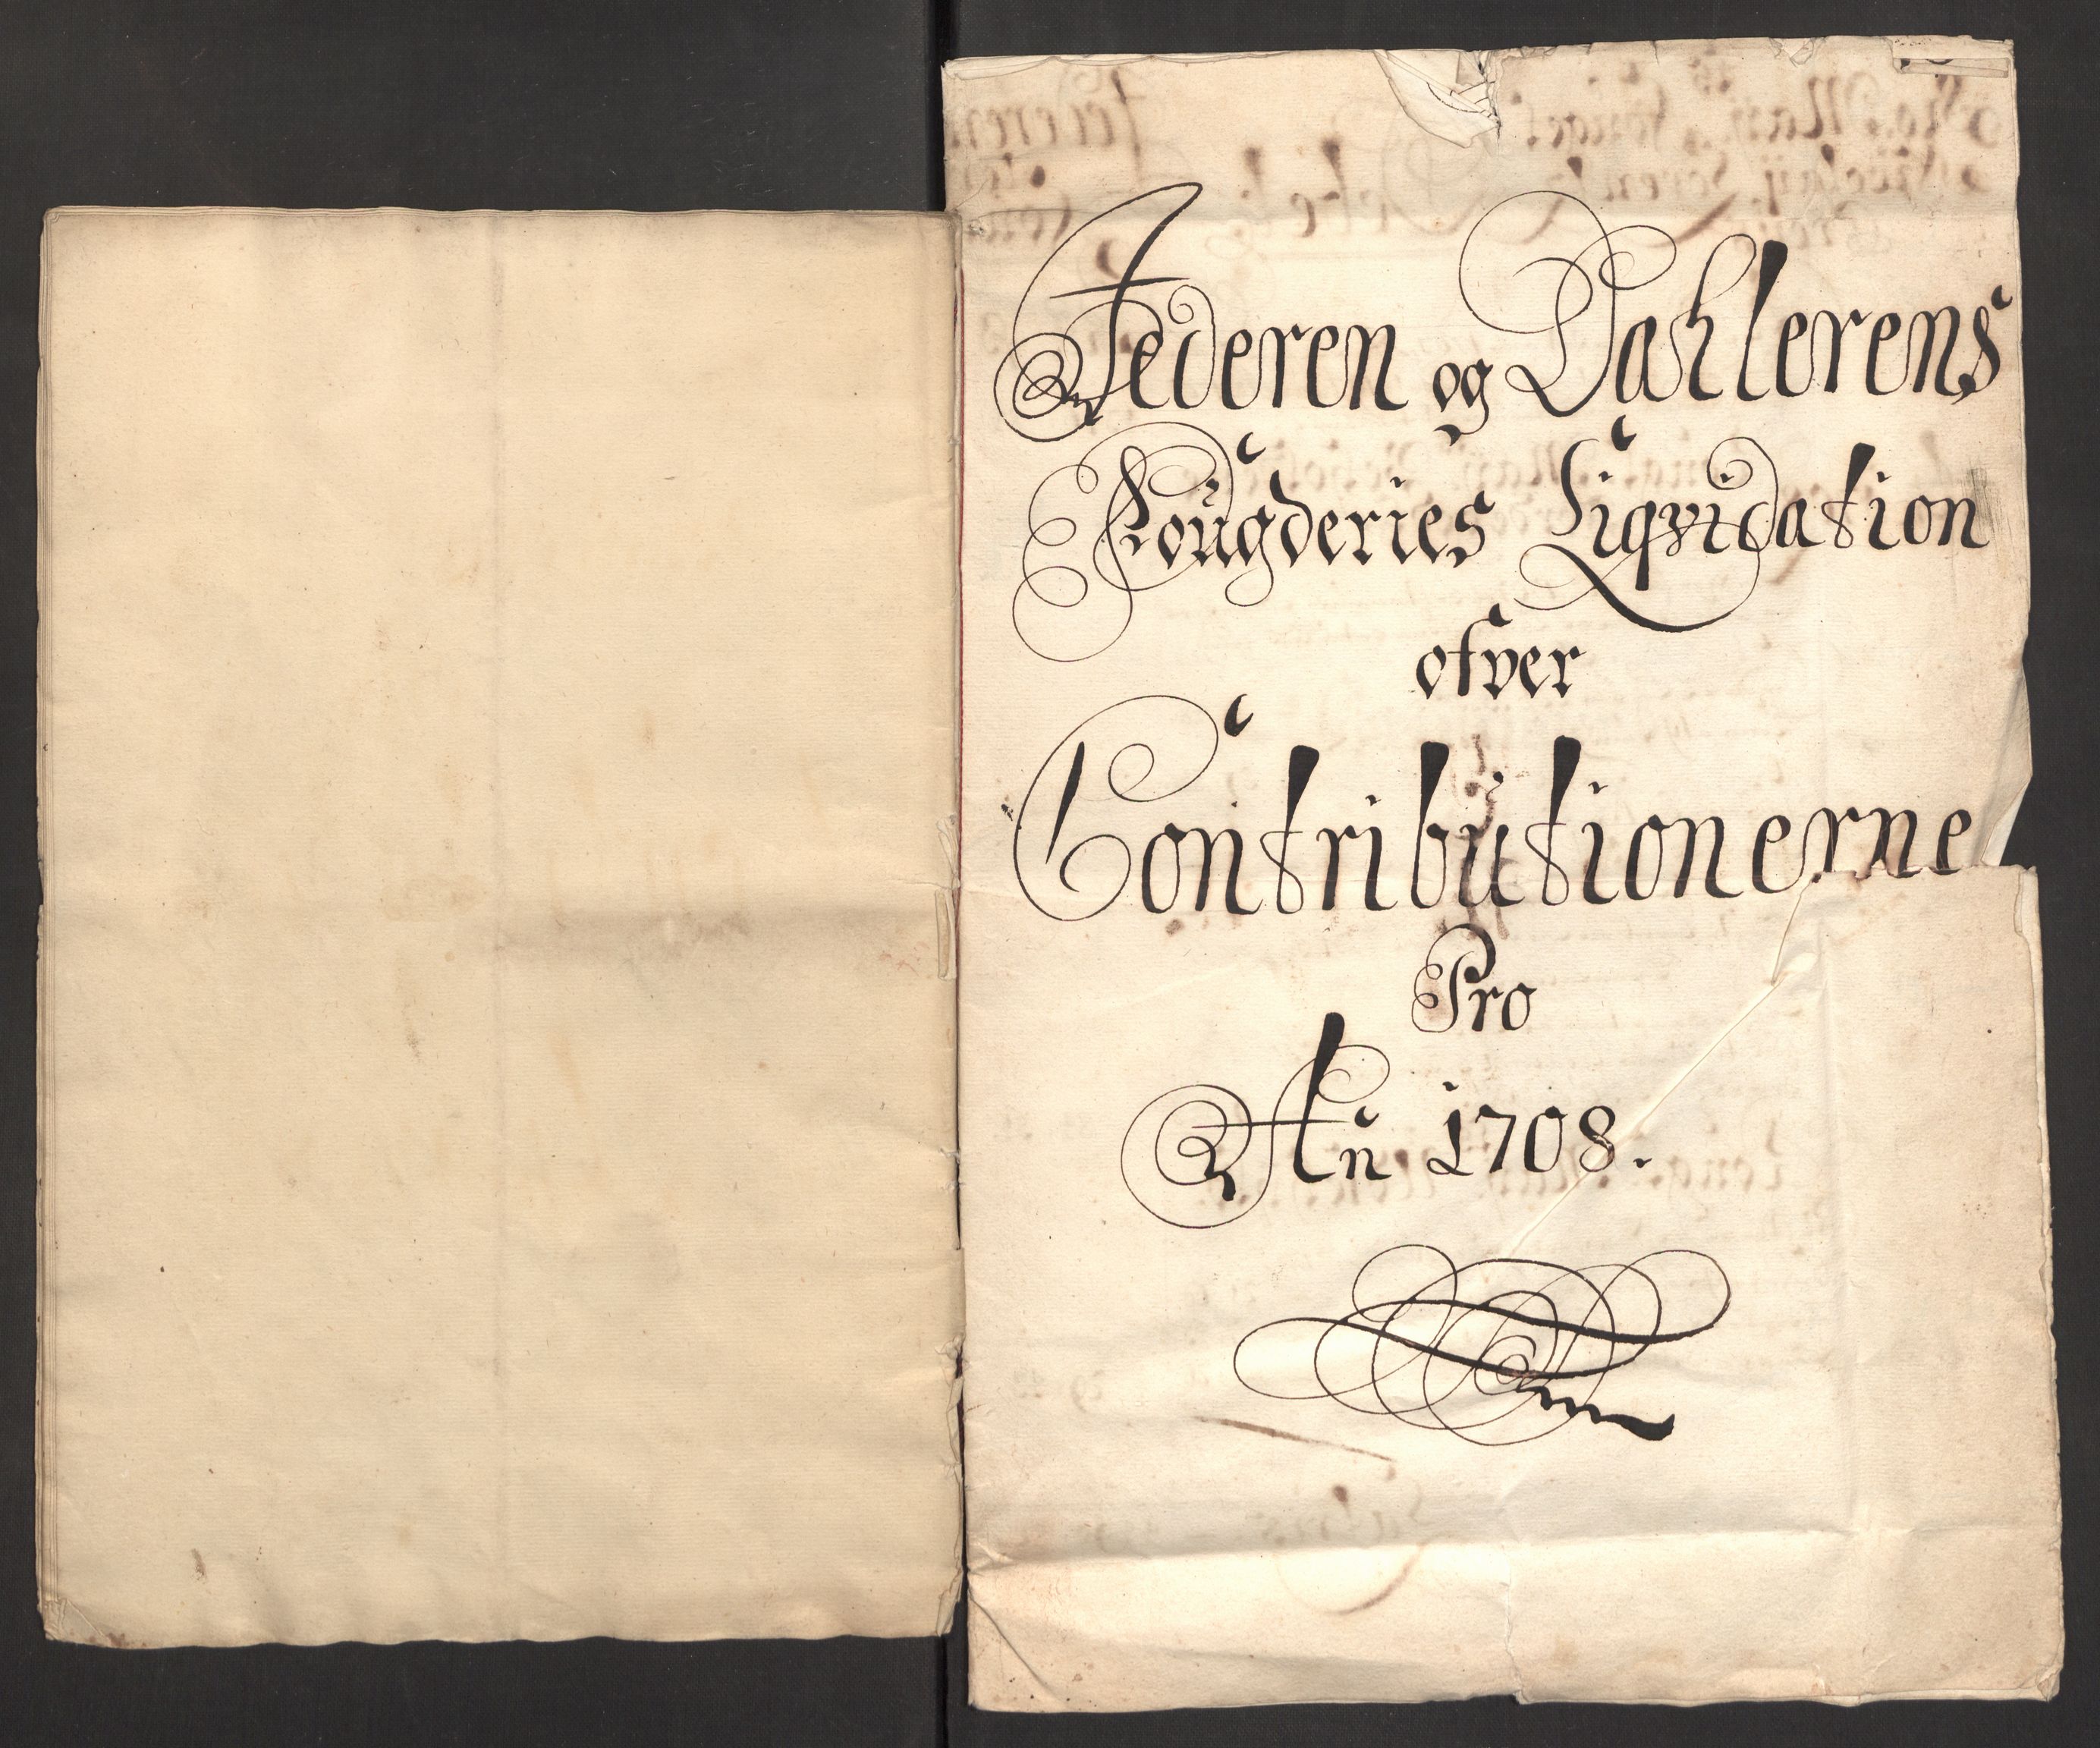 Jederen og Dahlerens
Fougderies Liqvidation
ofver
Contributionerne
Pro
An̄ 1708.